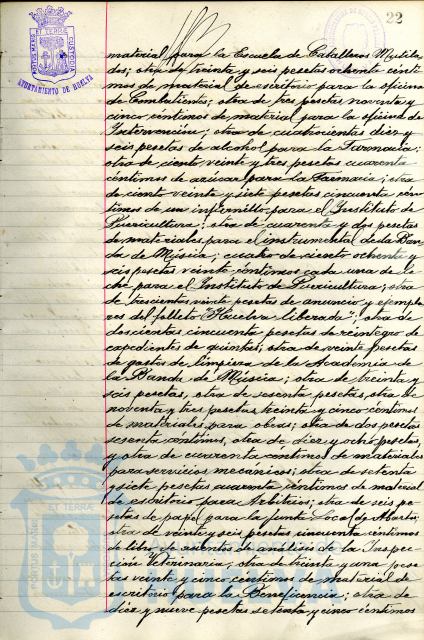 22
AYUNTAMIENTO DE HUELVA
material para la Escuela de Caballeros Mutila-
dos; otra de treinta y seis pesetas ochenta cénti-
mos de material de escritorio para la oficina
de Combatientes; otra de tres pesetas noventa y
cinco céntimos de material para la oficina de
Intervención; otra de cuatrocientas diez y
seis pesetas de alcohol para la Farmacia;
otra de ciento veinte y tres pesetas cuarenta
céntimos de azúcar para la Farmacia; otra
de ciento veinte y siete pesetas cincuenta cén-
timos de un infiernillo para el Instituto de
Puericultura; otra de cuarenta y dos pesetas
de materiales para el instrumental de la Ban-
da de Música; cuatro de ciento ochenta y
seis pesetas veinte céntimos cada una de le-
che para el Instituto de Puericultura; otra
de trescientas veinte pesetas de anuncio y ejempla-
res del folleto "Huelva liberada"; otra de
doscientas cincuenta pesetas de reintegro de
expedientes de quintas; otra de veinte pesetas
de gastos de limpieza de la Academia de
la Banda de Música; otra de treinta y
seis pesetas, otra de sesenta pesetas, otra de
noventa y tres pesetas treinta y cinco céntimos
de materiales para obras; otra de dos pesetas
sesenta céntimos, otra de diez y ocho pesetas,
y otra de cuarenta céntimos de materiales
para servicios mecánicos; otra de setenta
y siete pesetas cuarenta céntimos de material
de escritorio para Arbitrios; otra de seis pe-
setas de papel para la Junta Local de Abastos;
otra de veinte y seis pesetas cincuenta céntimos
de libro de asientos de análisis de la Inspec-
ción Veterinaria; otra de treinta y una pese-
tas veinte y cinco céntimos de material de
escritorio para la Beneficencia; otra de
diez y nueve pesetas setenta y cinco céntimos